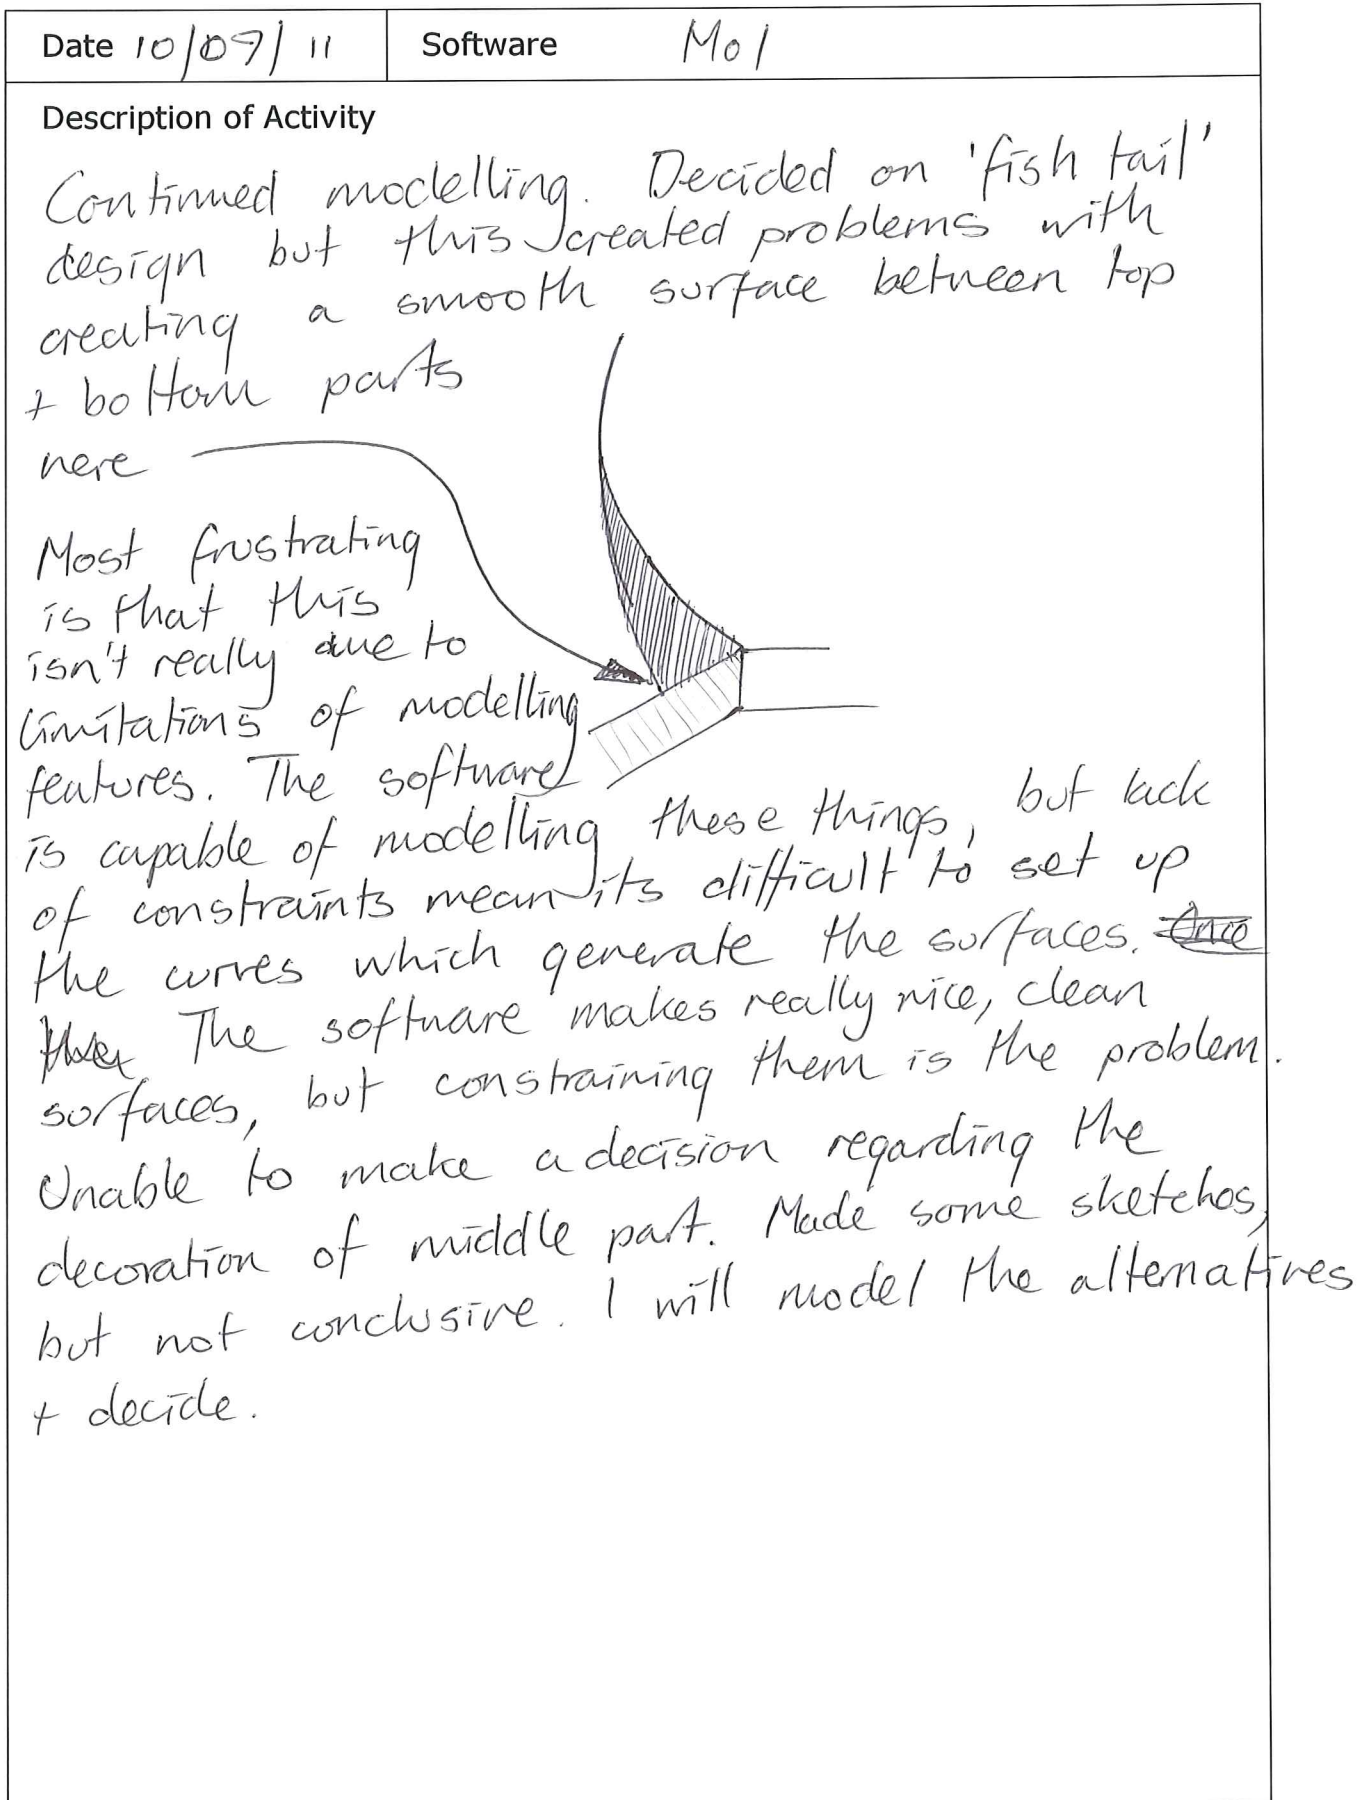 Date 10/09/11 Software MoI
Description of Activity
Continued modelling. Decided on 'fish tail'
design but this created problems with
creating a smooth surface between top
+ bottom parts
here
Most frustrating
is that this
isn't really due to
limitations of modelling
features. The software
is capable of modelling these things, but lack
of constraints mean its difficult to set up
the curves which generate the surfaces. Once
The software makes really nice, clean
surfaces, but constraining them is the problem.
Unable to make a decision regarding the
decoration of middle part. Made some sketches,
but not conclusive. I will model the alternatives
+ decide.